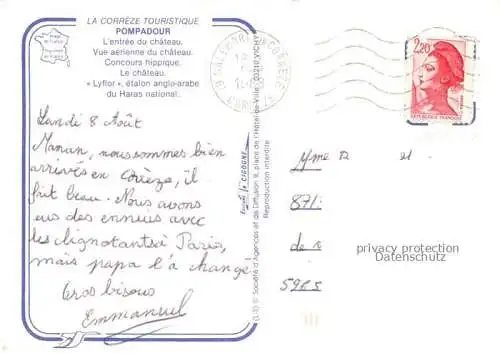 LA CORRÈZE TOURISTIQUE
POMPADOUR
L'entrée du château.
Vue aérienne du château.
Concours hippique.
Le château.
« Lyflor », étalon anglo-arabe
du Haras national.
Lundi 8 Août
Maman, nous sommes bien
arrivés en Corrèze, il
fait beau. Nous avons
eus des ennuies avec
les clignotants à Paris,
mais papa l'a changé
Gros bisous
Emmanuel
2,20
RÉPUBLIQUE FRANÇAISE
Mme
871
de
privacy protection
Datenschutz
(L-S) © Société d'Agences et de Diffusion 8, place de l'Hôtel-de-Ville 03210 VICHY
Reproduction interdite